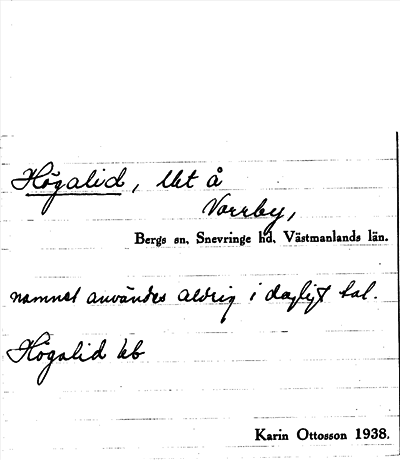 Högalid, lht å
Vorrby,
Bergs sn, Snevringe hd, Västmanlands län.
namnet användes aldrig i dagligt tal.
Högalid kb
Karin Ottosson 1938.